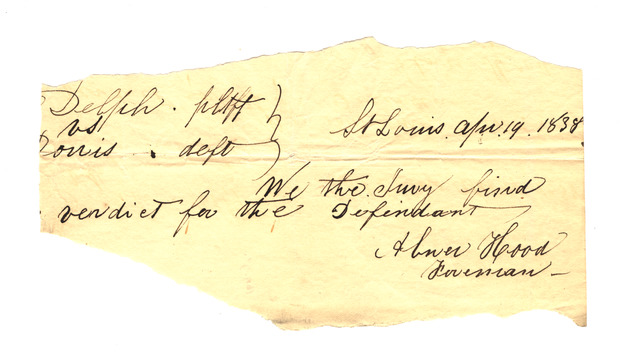 Delph . pltff
vs
Dorris . deft
St Louis. Apr. 19. 1838
We the Jury find
verdict for the Defendant
Abner Hood
Foreman